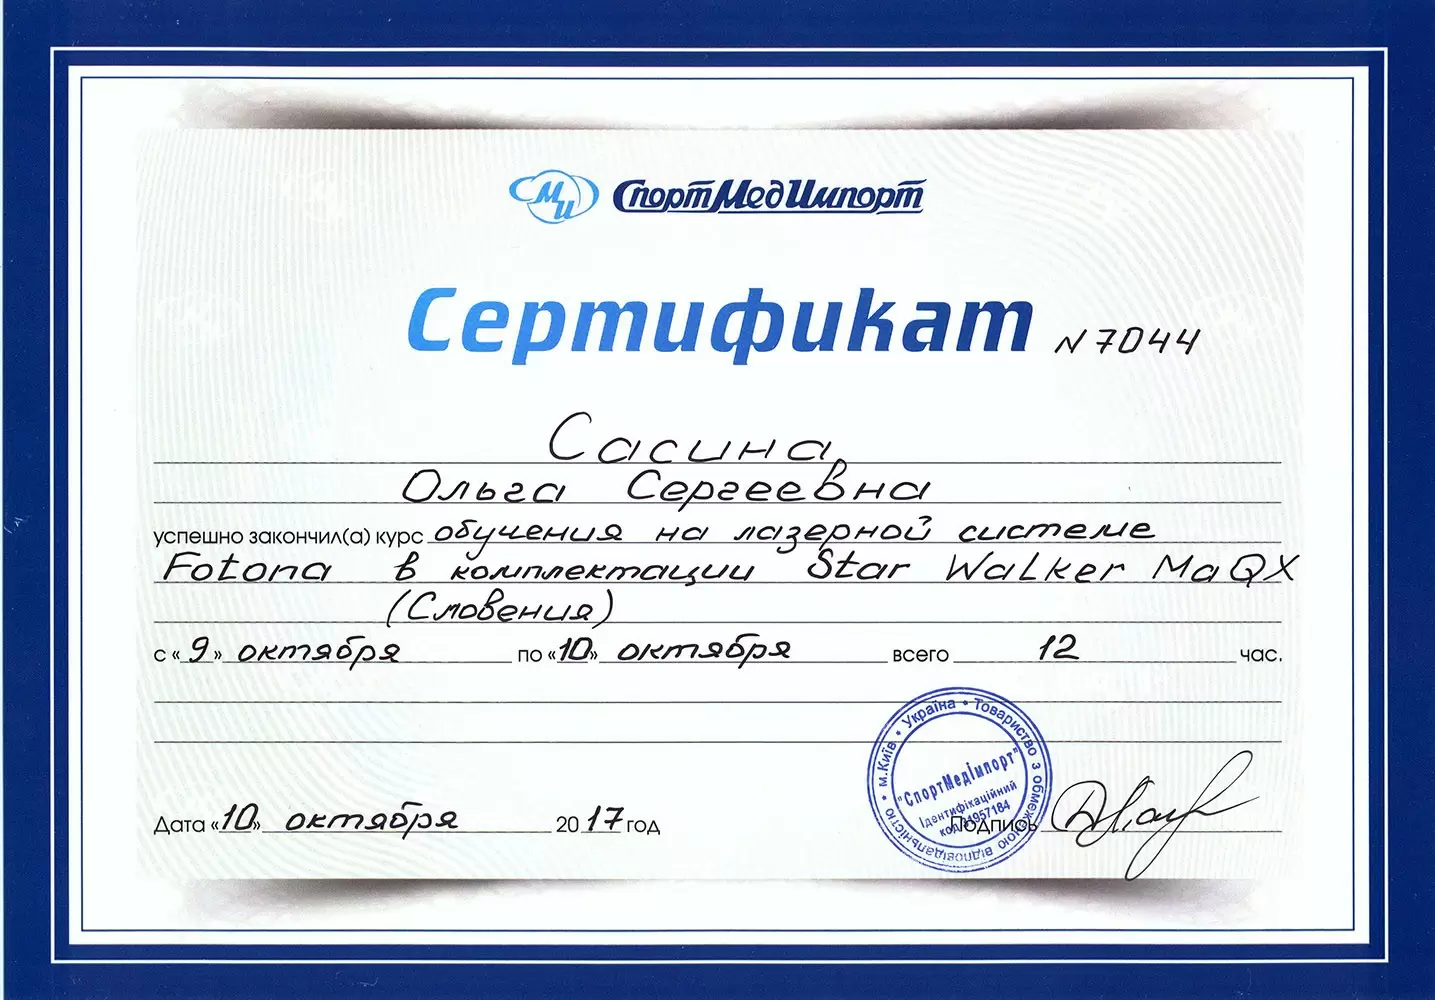 МИ СпортМедИмпорт
Сертификат N 7044
Сасина
Ольга Сергеевна
успешно закончил(а) курс обучения на лазерной системе
Fotona в комплектации Star Walker MaQX
(Словения)
с «9» октября по «10» октября всего 12 час.
м.Київ • Україна • Товариство з обмеженою відповідальністю •
"СпортМедІмпорт"
Ідентифікаційний
код 31957184
Дата «10» октября 2017 год Подпись